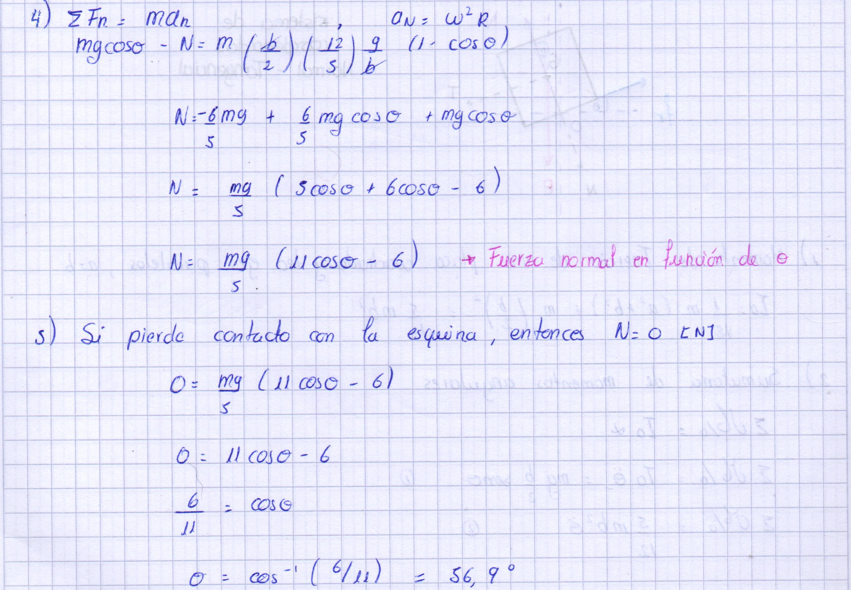 4) ΣFn = man , aN = ω²R
mg cosθ - N = m (b/2) (12/5) g/b (1 - cosθ)
N = -6/5 mg + 6/5 mg cosθ + mg cosθ
N = mg/5 (5cosθ + 6cosθ - 6)
N = mg/5 (11cosθ - 6) → Fuerza normal en función de θ
5) Si pierde contacto con la esquina, entonces N = 0 [N]
0 = mg/5 (11 cosθ - 6)
0 = 11 cosθ - 6
6/11 = cosθ
θ = cos⁻¹ (6/11) = 56,9°